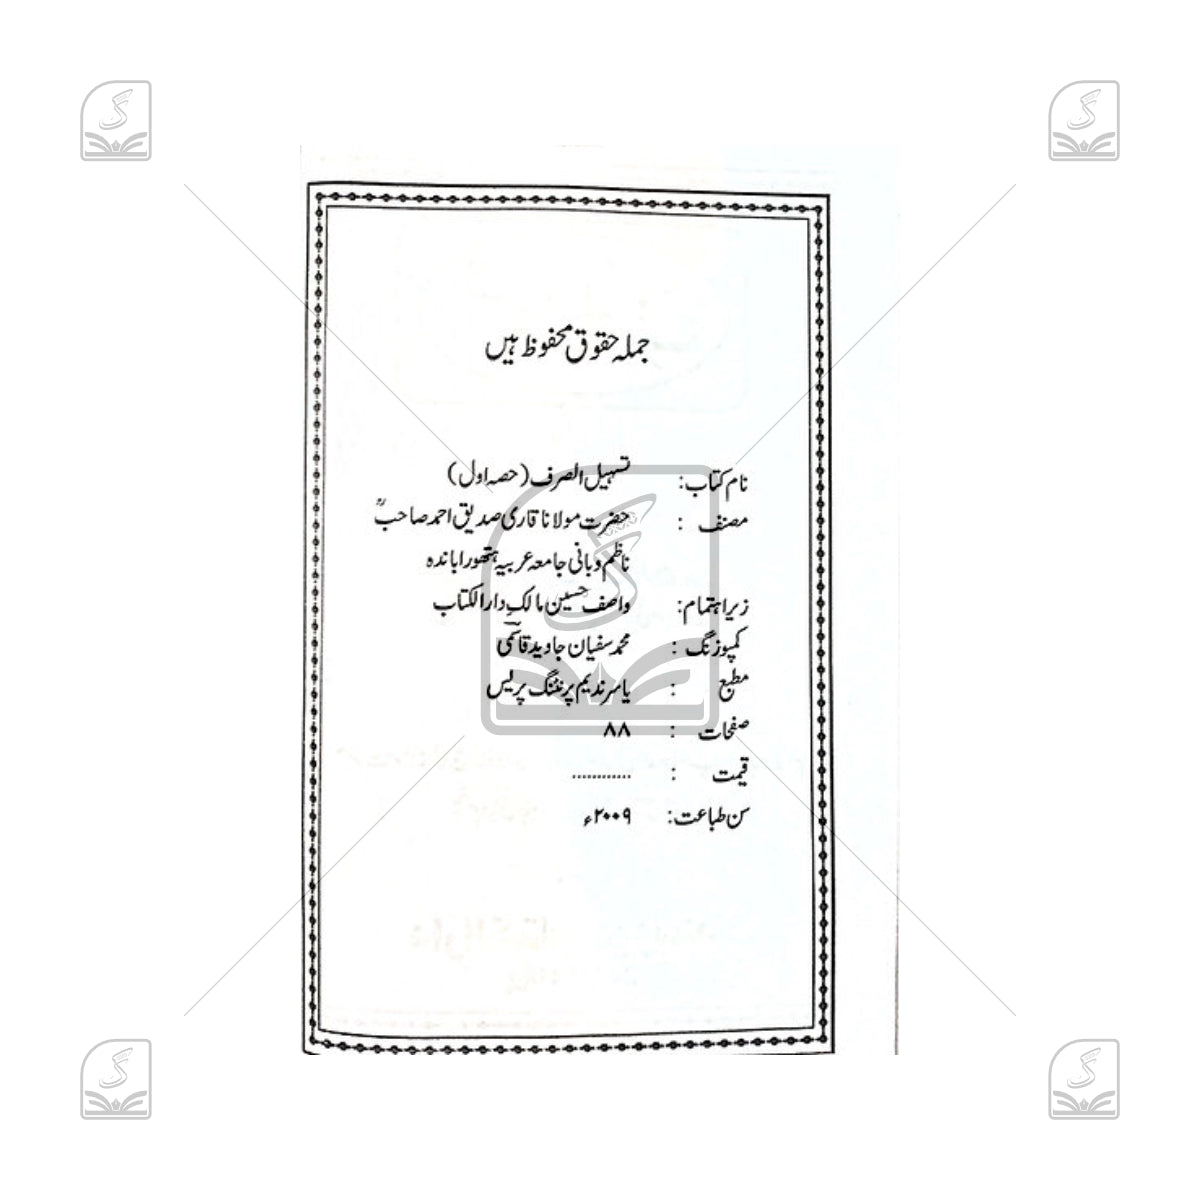 جملہ حقوق محفوظ ہیں
نام کتاب: تسہیل الصرف (حصہ اول)
مصنف : حضرت مولانا قاری صدیق احمد صاحبؒ
ناظم وبانی جامعہ عربیہ ہتھورا باندہ
زیر اہتمام: واصف حسین مالک دارالکتاب
کمپوزنگ : محمد سفیان جاوید قاسمی
مطبع : یاسر ندیم پرنٹنگ پریس
صفحات : ۸۸
قیمت : ............
سن طباعت: ۲۰۰۹ء